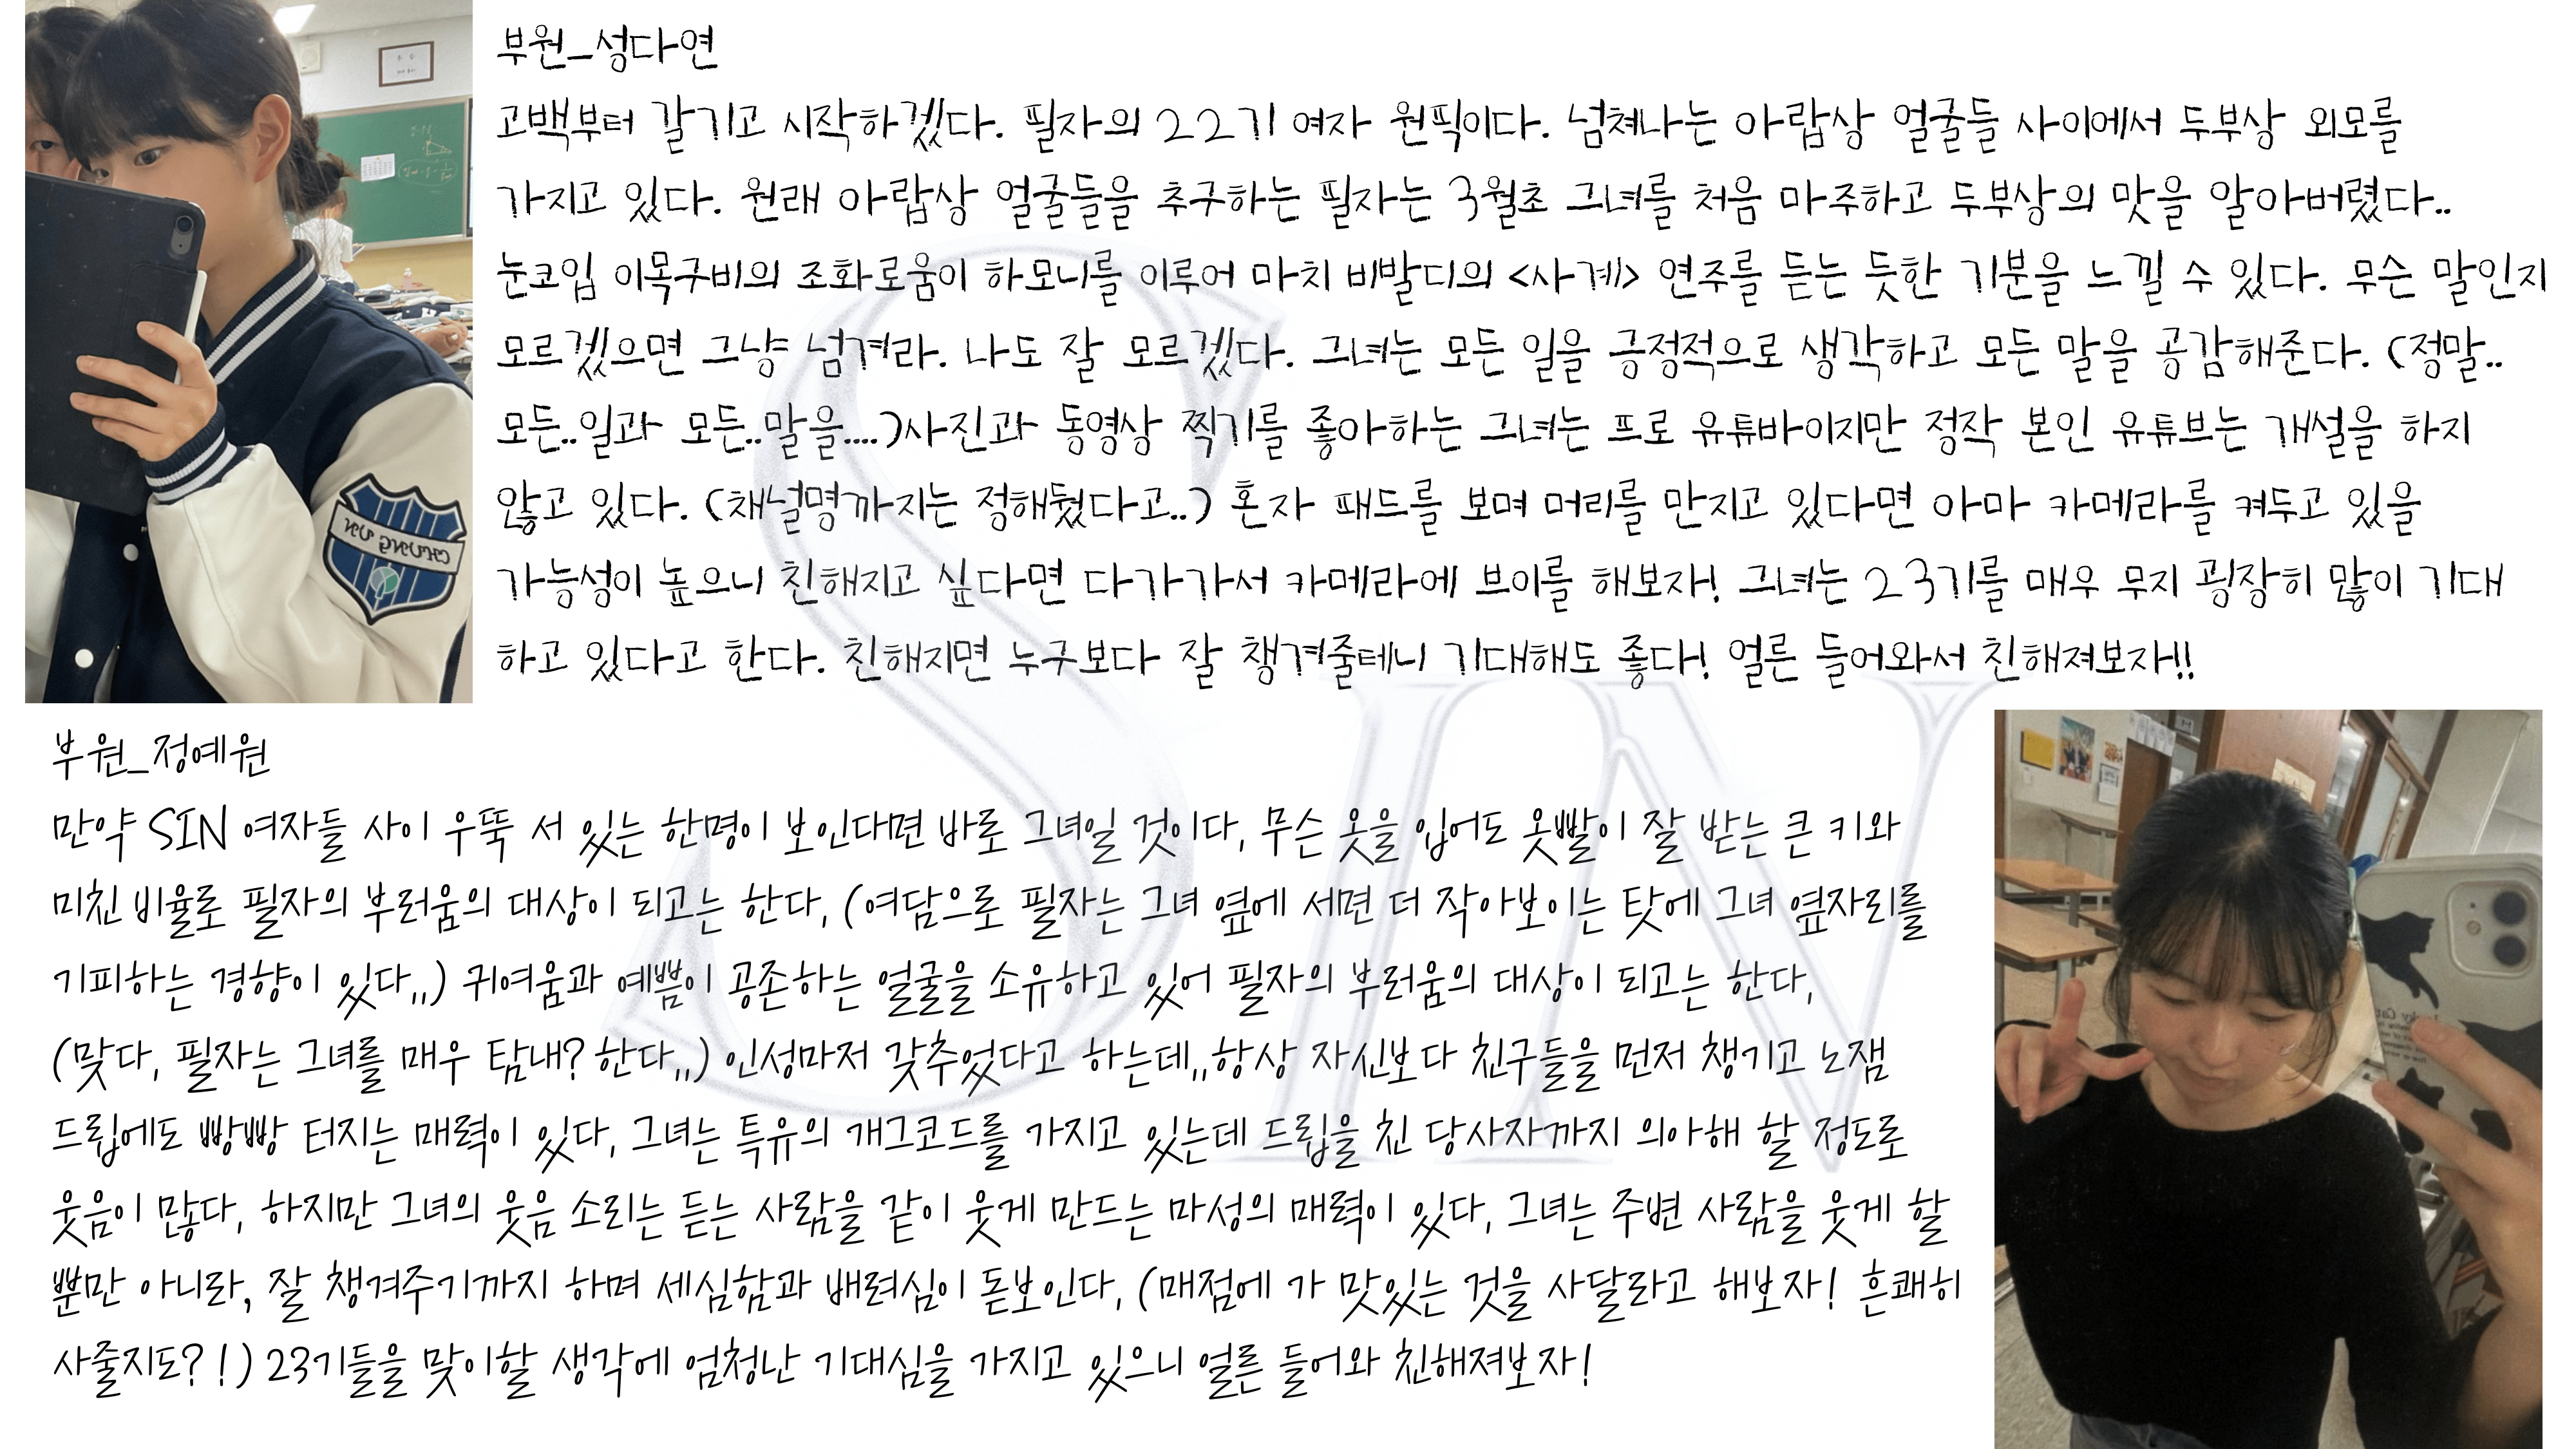 부원_성다연
고백부터 갈기고 시작하겠다. 필자의 22기 여자 원픽이다. 넘쳐나는 아랍상 얼굴들 사이에서 두부상 외모를
가지고 있다. 원래 아랍상 얼굴들을 추구하는 필자는 3월초 그녀를 처음 마주하고 두부상의 맛을 알아버렸다..
눈코입 이목구비의 조화로움이 하모니를 이루어 마치 비발디의 <사계> 연주를 듣는 듯한 기분을 느낄 수 있다. 무슨 말인지
모르겠으면 그냥 넘겨라. 나도 잘 모르겠다. 그녀는 모든 일을 긍정적으로 생각하고 모든 말을 공감해준다. (정말..
모든..일과 모든..말을....)사진과 동영상 찍기를 좋아하는 그녀는 프로 유튜바이지만 정작 본인 유튜브는 개설을 하지
않고 있다. (채널명까지는 정해뒀다고..) 혼자 패드를 보며 머리를 만지고 있다면 아마 카메라를 켜두고 있을
가능성이 높으니 친해지고 싶다면 다가가서 카메라에 브이를 해보자! 그녀는 23기를 매우 무지 굉장히 많이 기대
하고 있다고 한다. 친해지면 누구보다 잘 챙겨줄테니 기대해도 좋다! 얼른 들어와서 친해져보자!!
CHUNG UN
부원_정예원
만약 SIN 여자들 사이 우뚝 서 있는 한명이 보인다면 바로 그녀일 것이다, 무슨 옷을 입어도 옷빨이 잘 받는 큰 키와
미친 비율로 필자의 부러움의 대상이 되고는 한다, (여담으로 필자는 그녀 옆에 서면 더 작아보이는 탓에 그녀 옆자리를
기피하는 경향이 있다,,) 귀여움과 예쁨이 공존하는 얼굴을 소유하고 있어 필자의 부러움의 대상이 되고는 한다,
(맞다, 필자는 그녀를 매우 탐내? 한다,,) 인성마저 갖추었다고 하는데,,항상 자신보다 친구들을 먼저 챙기고 노잼
드립에도 빵빵 터지는 매력이 있다, 그녀는 특유의 개그코드를 가지고 있는데 드립을 친 당사자까지 의아해 할 정도로
웃음이 많다, 하지만 그녀의 웃음 소리는 듣는 사람을 같이 웃게 만드는 마성의 매력이 있다, 그녀는 주변 사람을 웃게 할
뿐만 아니라, 잘 챙겨주기까지 하며 세심함과 배려심이 돋보인다, (매점에 가 맛있는 것을 사달라고 해보자! 흔쾌히
사줄지도?!) 23기들을 맞이할 생각에 엄청난 기대심을 가지고 있으니 얼른 들어와 친해져보자!
SIN